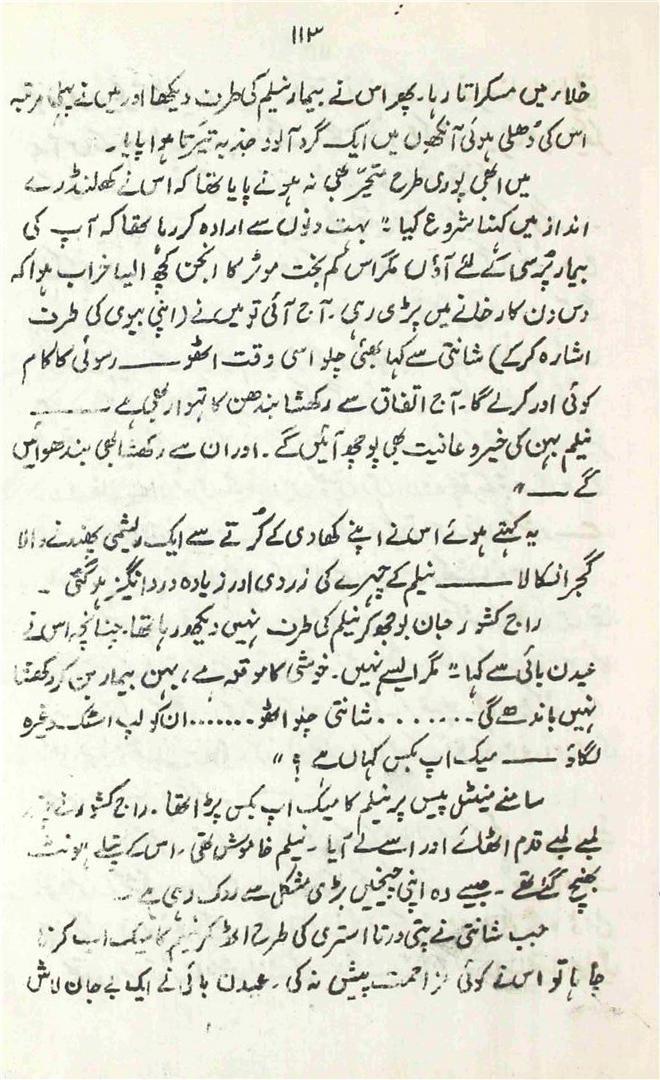 ۱۱۳
خلاء میں مسکراتا رہا۔ پھر اس نے بیمار نیلم کی طرف دیکھا اور میں نے پہلی مرتبہ
اس کی دُھلی ہوئی آنکھوں میں ایک گرد آلود جذبہ تیرتا ہوا پایا۔
میں ابھی پوری طرح متحیر بھی نہ ہونے پایا تھا کہ اس نے کھلنڈرے
انداز میں کہنا شروع کیا "بہت دنوں سے ارادہ کر رہا تھا کہ آپ کی
بیمار پُرسی کے لئے آؤں مگر اس کم بخت موٹر کا انجن کچھ ایسا خراب ہوا کہ
دس دن کارخانے میں پڑی رہی۔ آج آئی تو میں نے (اپنی بیوی کی طرف
اشارہ کر کے) شانتی سے کہا بھئی چلو اسی وقت اٹھو ــــ رسوئی کا کام
کوئی اور کرلے گا۔ آج اتفاق سے رکھشا بندھن کا تہوار بھی ہے ــــ
نیلم بہن کی خیر و عافیت بھی پوچھ آئیں گے۔ اور ان سے رکھشا بھی بندھوائیں
گے ــــ"
یہ کہتے ہوئے اس نے اپنے کھادی کے کُرتے سے ایک ریشمی پھندنے والا
گجرا نکالا ــــ نیلم کے چہرے کی زردی اور زیادہ درد انگیز ہوگئی۔
راج کشور جان بوجھ کر نیلم کی طرف نہیں دیکھ رہا تھا۔ چنانچہ اس نے
عیدن بائی سے کہا "مگر ایسے نہیں۔ خوشی کا موقعہ ہے، بہن بیمار بن کر رکھشا
نہیں باندھے گی ....... شانتی چلو اٹھو ....... ان کو لپ اسٹک وغیرہ
لگاؤ ــــ میک اپ بکس کہاں ہے؟"
سامنے مینٹل پیس پر نیلم کا میک اپ بکس پڑا تھا۔ راج کشور نے چند
لمبے لمبے قدم اٹھائے اور اسے لے آیا۔ نیلم خاموش تھی۔ اس کے پتلے ہونٹ
بھنچ گئے تھے۔ جیسے وہ اپنی چیخیں بڑی مشکل سے روک رہی ہے۔
جب شانتی نے پتی ورتا استری کی طرح اٹھ کر نیلم کا میک اپ کرنا
چاہا تو اس نے کوئی مزاحمت پیش نہ کی۔ عیدن بائی نے ایک بے جان لاش